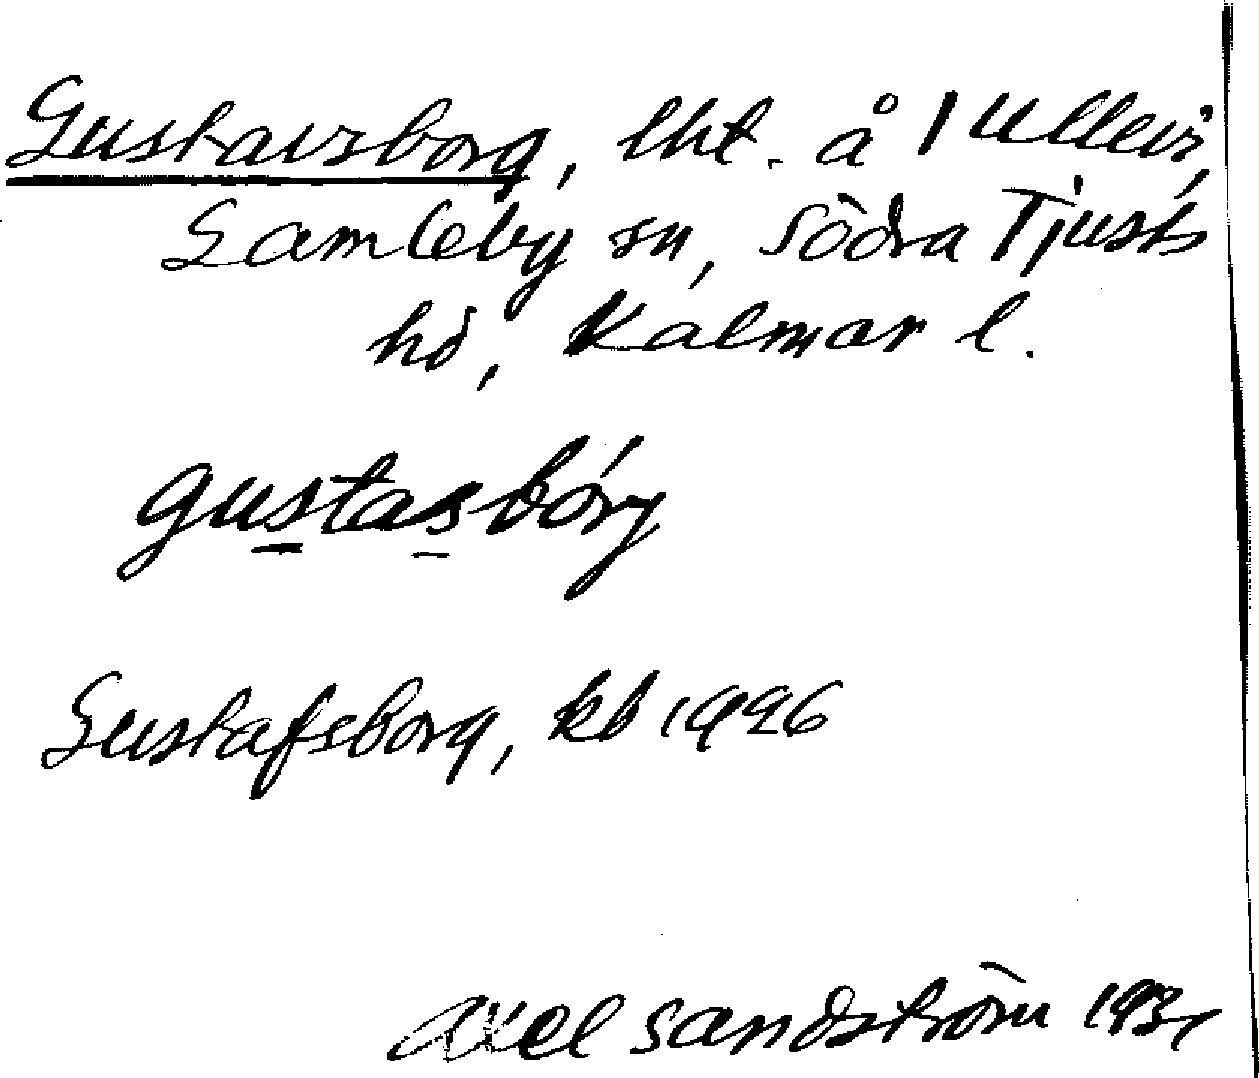 Gustavsborg, lht. å 1 Ullevi,
Gamleby sn, Södra Tjusts
hd, Kalmar l.
gustasbórg
Gustafsborg, kb 1926
Axel Sandström